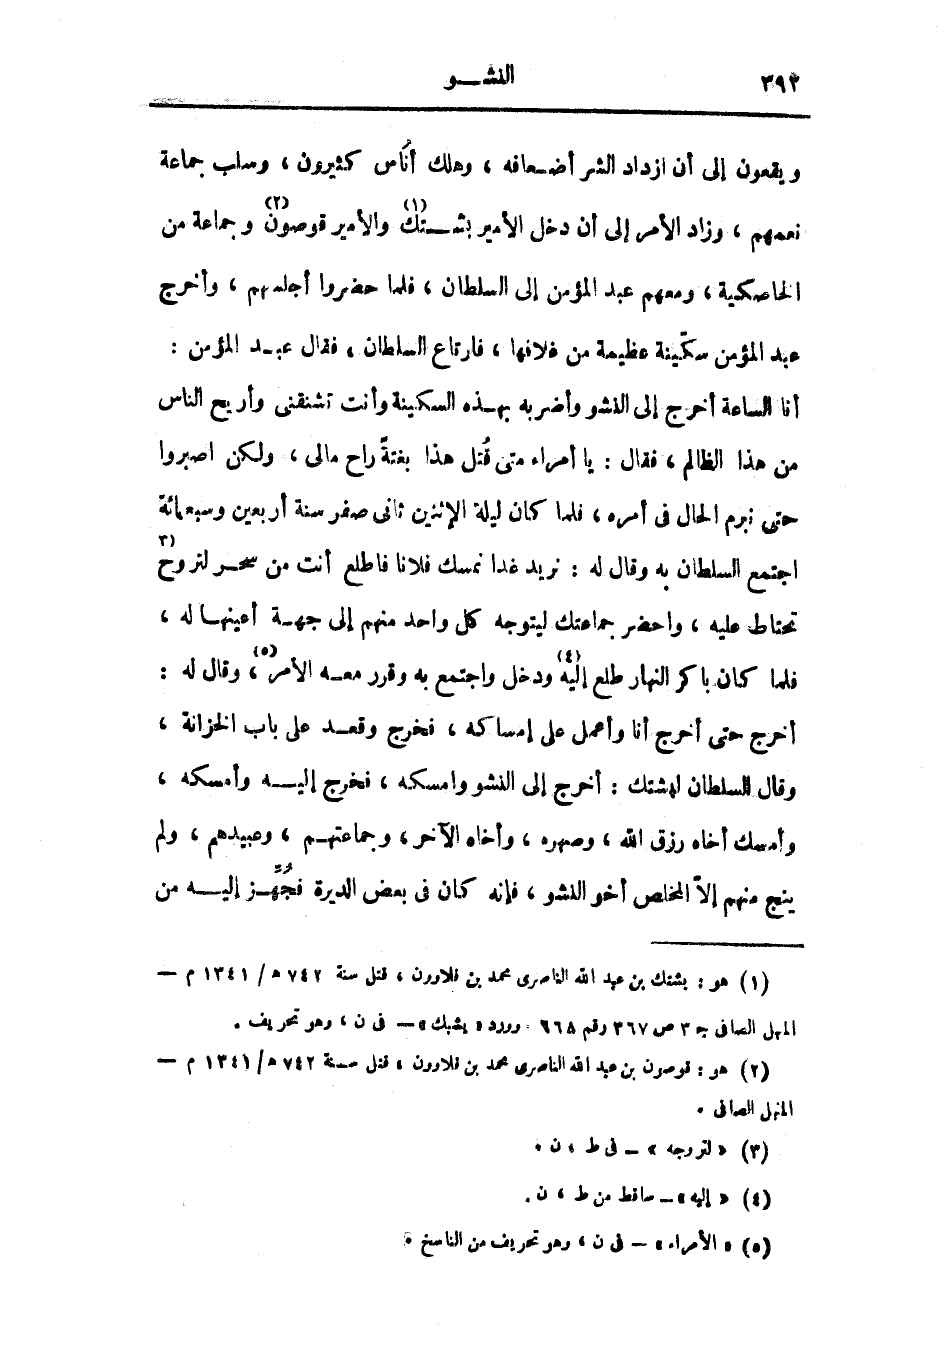 ٣٩٢
النشــو
ويقعون إلى أن ازداد الشر أضـعافه ، وهلك أُناس كثيرون ، وسلب جماعة
نعمهم ، وزاد الأمر إلى أن دخل الأمير بشــتك(١) والأمير قوصون(٢) وجماعة من
الخاصكية ، ومعهم عبد المؤمن إلى السلطان ، فلما حضروا أجلسهم ، وأخرج
عبد المؤمن سكّينة عظيمة من غلافها ، فارتاع السلطان ، فقال عبـد المؤمن :
أنا الساعة أخرج إلى النشو وأضربه بهـذه السكينة وأنت تشنقنى وأريح الناس
من هذا الظالم ، فقال : يا أمراء متى قُتل هذا بغتةً راح مالى ، ولكن اصبروا
حتى نبرم الحال فى أمره ، فلما كان ليلة الإثنين ثانى صفر سنة أربعين وسبعمائة
اجتمع السلطان به وقال له : نريد غدا نمسك فلانا فاطلع أنت من سحـر لتروح(٣)
تحتاط عليه ، واحضر جماعتك ليتوجه كل واحد منهم إلى جهـة أعينهـا له ،
فلما كان باكر النهار طلع إليه(٤) ودخل واجتمع به وقرر معـه الأمر(٥) ، وقال له :
أخرج حتى أخرج أنا وأعمل على إمساكه ، فخرج وقعـد على باب الخزانة ،
وقال السلطان لبشتك : أخرج إلى النشو وامسكه ، فخرج إليـه وأمسكه ،
وأمسك أخاه رزق الله ، وصهره ، وأخاه الآخر ، وجماعتهـم ، وعبيدهم ، ولم
ينج منهم إلاّ المخلص أخو النشو ، فإنه كان فى بعض الديرة فجُهِّـز إليــه من
(١) هو : بشتك بن عبد الله الناصرى محمد بن قلاوون ، قتل سنة ٧٤٢ ه / ١٣٤١ م —
المنهل الصافى ج ٣ ص ٣٦٧ رقم ٦٦٨ . وورد « يشبك » — فى ن ، وهو تحريف .
(٢) هو : قوصون بن عبد الله الناصرى محمد بن قلاوون ، قتل سنة ٧٤٢ ه / ١٣٤١ م —
المنهل الصافى .
(٣) « لتروجه » — فى ط ، ن .
(٤) « إليه » — ساقط من ط ، ن .
(٥) « الأمراء » — فى ن ، وهو تحريف من الناسخ .